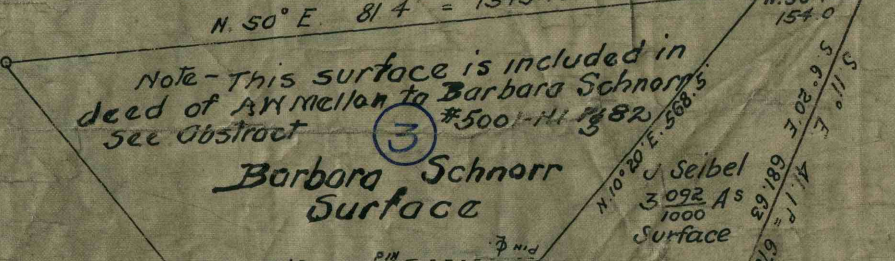 N. 50° E. 81.4 =
154.0
Note - This surface is included in
deed of AW Mellon to Barbara Schnorr
See Abstract
3
Barbara Schnorr
Surface
N. 10° 20' E. 568.5'
J Seibel
3 092/1000 As
Surface
S 6° 20' E 681.63
S 11° E 41.1 P =
Pin
Pin ₵